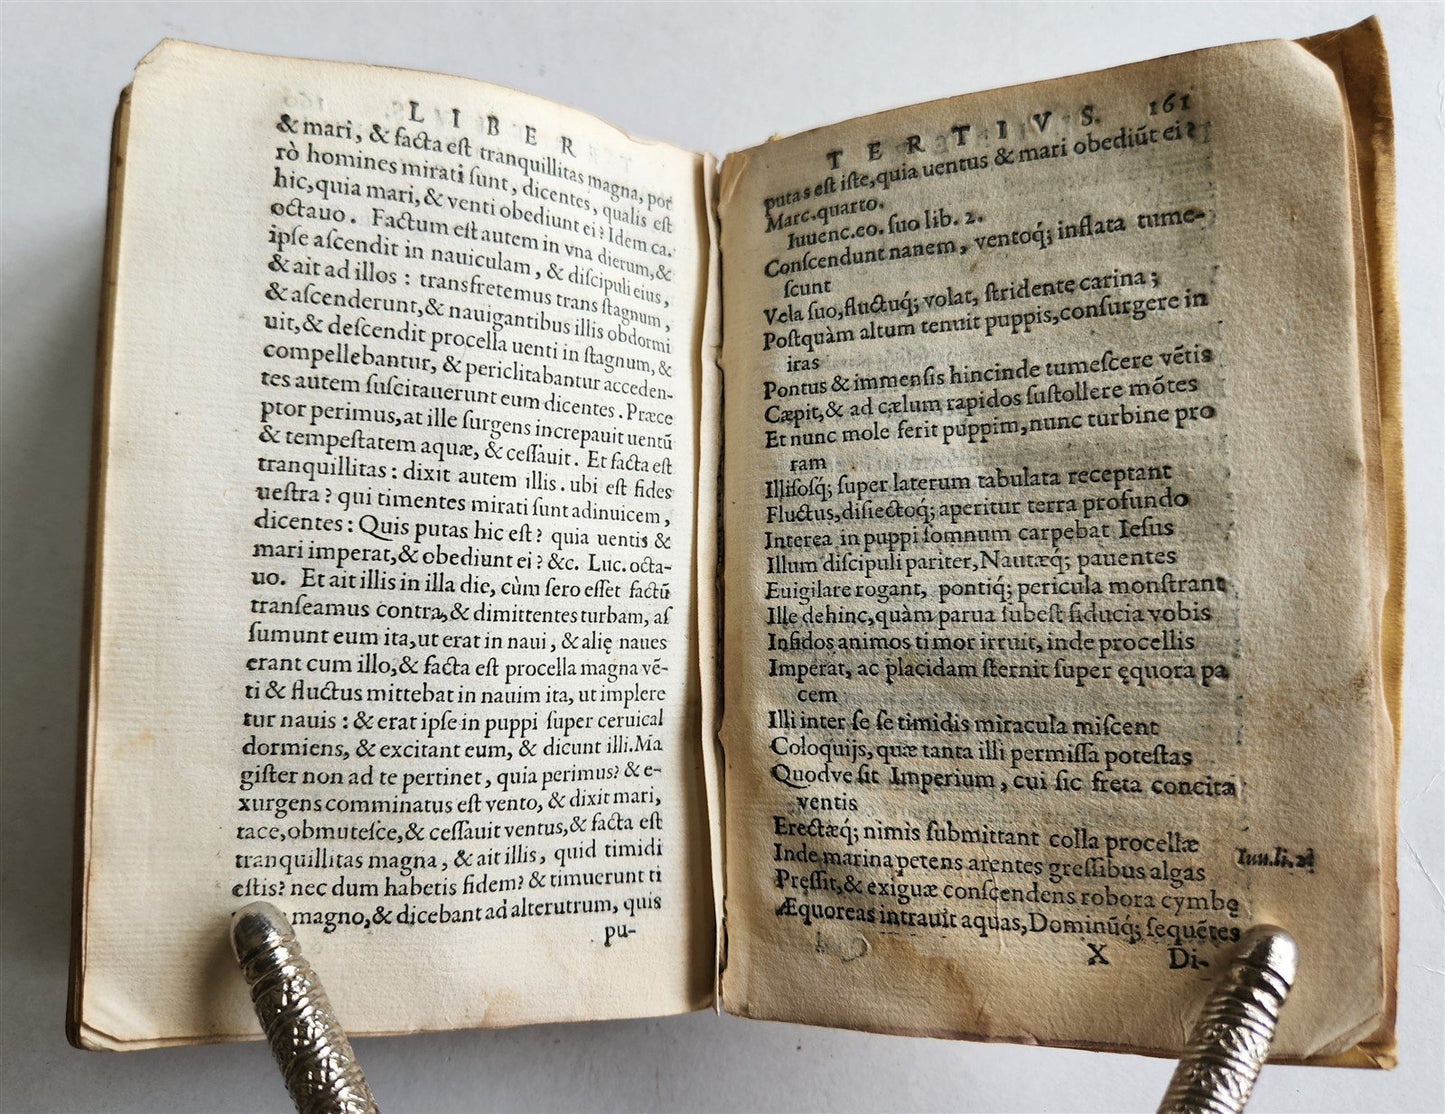 LIBER
& mari, & facta est tranquillitas magna, por
rò homines mirati sunt, dicentes, qualis est
hic, quia mari, & venti obediunt ei? Idem ca.
octauo. Factum est autem in vna dierum, &
ipse ascendit in nauiculam, & discipuli eius,
& ait ad illos: transfretemus trans stagnum,
& ascenderunt, & nauigantibus illis obdormi
uit, & descendit procella uenti in stagnum, &
compellebantur, & periclitabantur acceden-
tes autem suscitauerunt eum dicentes. Præce
ptor perimus, at ille surgens increpauit uentū
& tempestatem aquæ, & cessauit. Et facta est
tranquillitas: dixit autem illis. ubi est fides
uestra? qui timentes mirati sunt adinuicem,
dicentes: Quis putas hic est? quia uentis &
mari imperat, & obediunt ei? &c. Luc. octa-
uo. Et ait illis in illa die, cùm sero esset factū
transeamus contra, & dimittentes turbam, as
sumunt eum ita, ut erat in naui, & alię naues
erant cum illo, & facta est procella magna vē-
ti & fluctus mittebat in nauim ita, ut implere
tur nauis: & erat ipse in puppi super ceruical
dormiens, & excitant eum, & dicunt illi. Ma
gister non ad te pertinet, quia perimus? & e-
xurgens comminatus est vento, & dixit mari,
tace, obmutesce, & cessauit ventus, & facta est
tranquillitas magna, & ait illis, quid timidi
estis? nec dum habetis fidem? & timuerunt ti
magno, & dicebant ad alterutrum, quis
pu-
TERTIVS. 161
putas est iste, quia uentus & mari obediūt ei?
Marc. quarto.
Iuuenc. eo. suo lib. 2.
Conscendunt nanem, ventoq́; inflata tume-
scunt
Vela suo, fluctuq́; volat, stridente carina;
Postquàm altum tenuit puppis, consurgere in
iras
Pontus & immensis hincinde tumescere vētis
Cæpit, & ad cælum rapidos sustollere mōtes
Et nunc mole ferit puppim, nunc turbine pro
ram
Illisosq́; super laterum tabulata receptant
Fluctus, disiectoq́; aperitur terra profundo
Interea in puppi somnum carpebat Iesus
Illum discipuli pariter, Nautæq́; pauentes
Euigilare rogant, pontiq́; pericula monstrant
Ille dehinc, quàm parua subest fiducia vobis
Infidos animos timor irruit, inde procellis
Imperat, ac placidam sternit super ęquora pa
cem
Illi inter se se timidis miracula miscent
Coloquijs, quæ tanta illi permissa potestas
Quodve sit Imperium, cui sic freta concita
ventis
Erectæq́; nimis submittant colla procellæ
Inde marina petens arentes gressibus algas
Iuu. li. 2.
Pressit, & exiguæ conscendens robora cymbę
Æquoreas intrauit aquas, Dominūq́; sequētes
X Di-